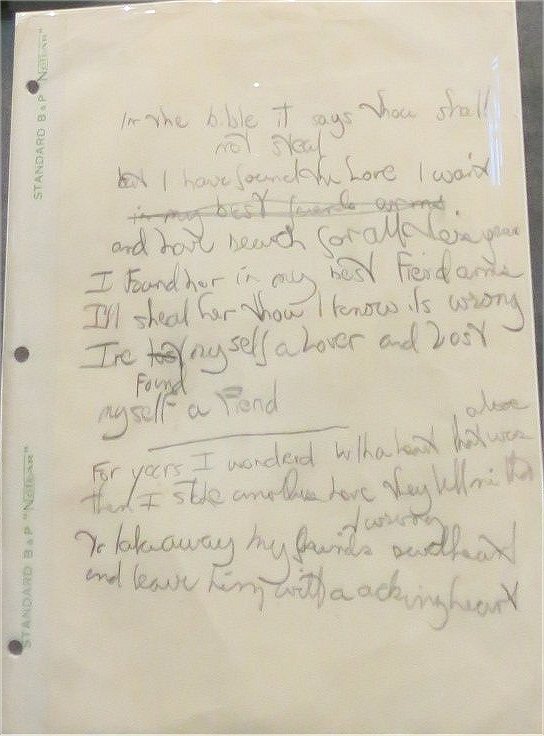 In the bible it says thou shall
not steal
but I have found the Love I want
in my best friends arms
and have search for all these years
I found her in my best Freind arms
I'll sheal her thow I know its wrong
Ive lost my self a Lover and Lost
Found
myself a Friend
alone
For years I wonderd with a heart that was
then I stole another Love they tell me that
I wrong
To take away my freinds sweetheart
and leave him with a acking heart
STANDARD B&P "NOTEAR"
STANDARD B&P "NOTEAR"